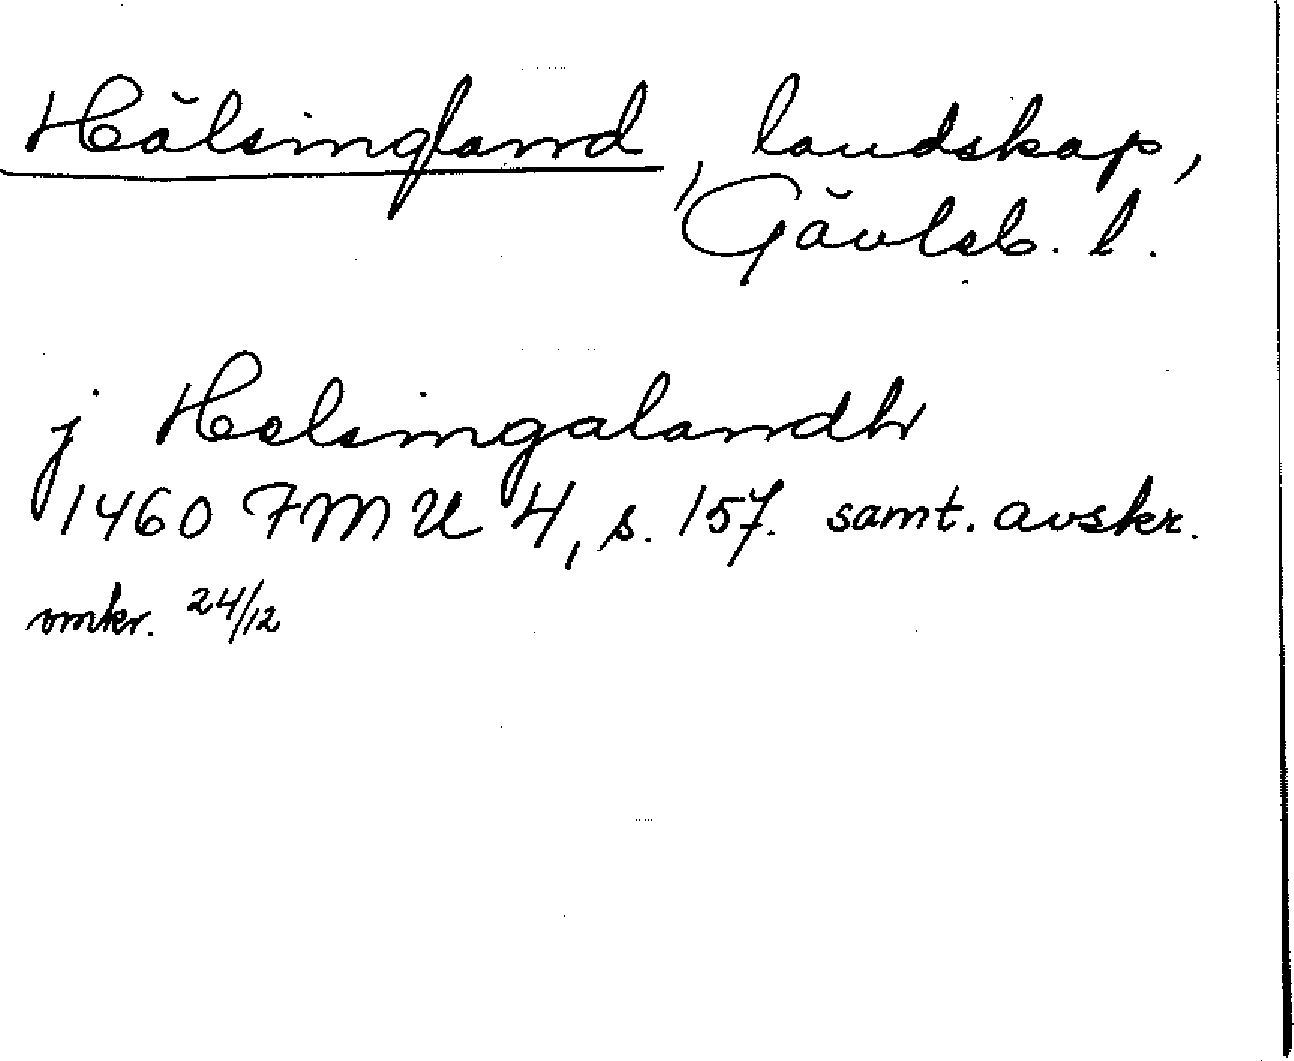 Hälsingland, landskap,
Gävleb. l.
j Helsingalandh
1460 FMU 4, s. 157. samt. avskr.
omkr. 24/12